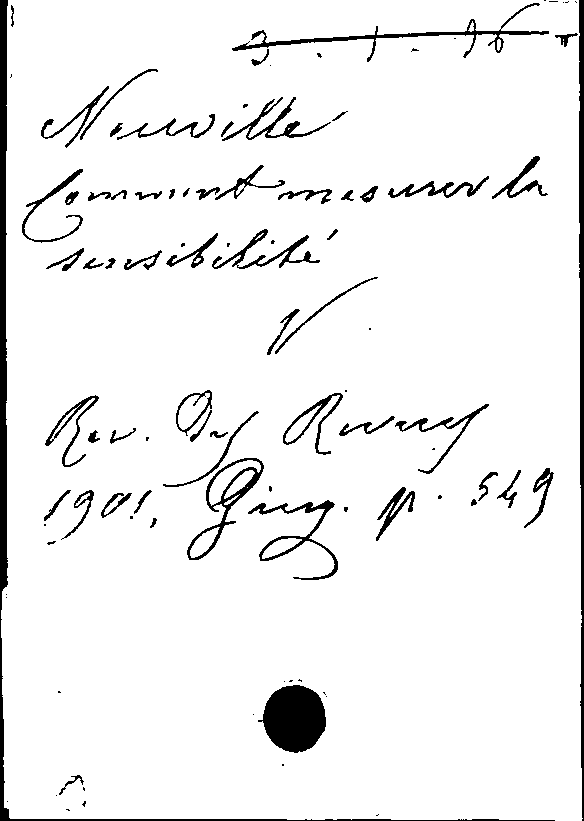 3.1.16
Neuville
Comment mesurer la
sensibilité
V.
Rev. Des Revues
1901, Giug. p. 549